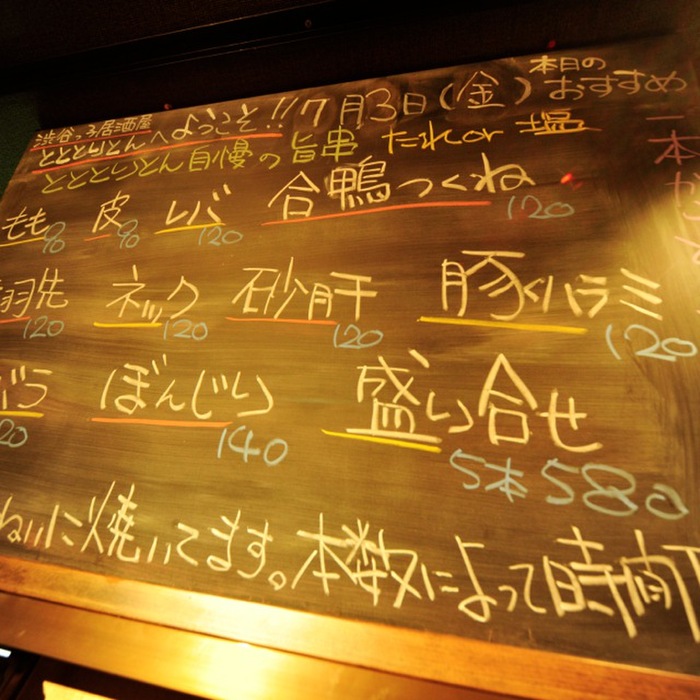 渋谷っ子居酒屋
とととりとんへようこそ!! 7月3日(金) 本日のおすすめ
とととりとん自慢の旨串 たれor塩
もも 皮 レバ 合鴨つくね
90 90 120 120
羽先 ネック 砂肝 豚ハラミ
120 120 120 120
バラ ぼんじり 盛り合せ
20 140 5本580
ねいに焼いてます。本数によって時間